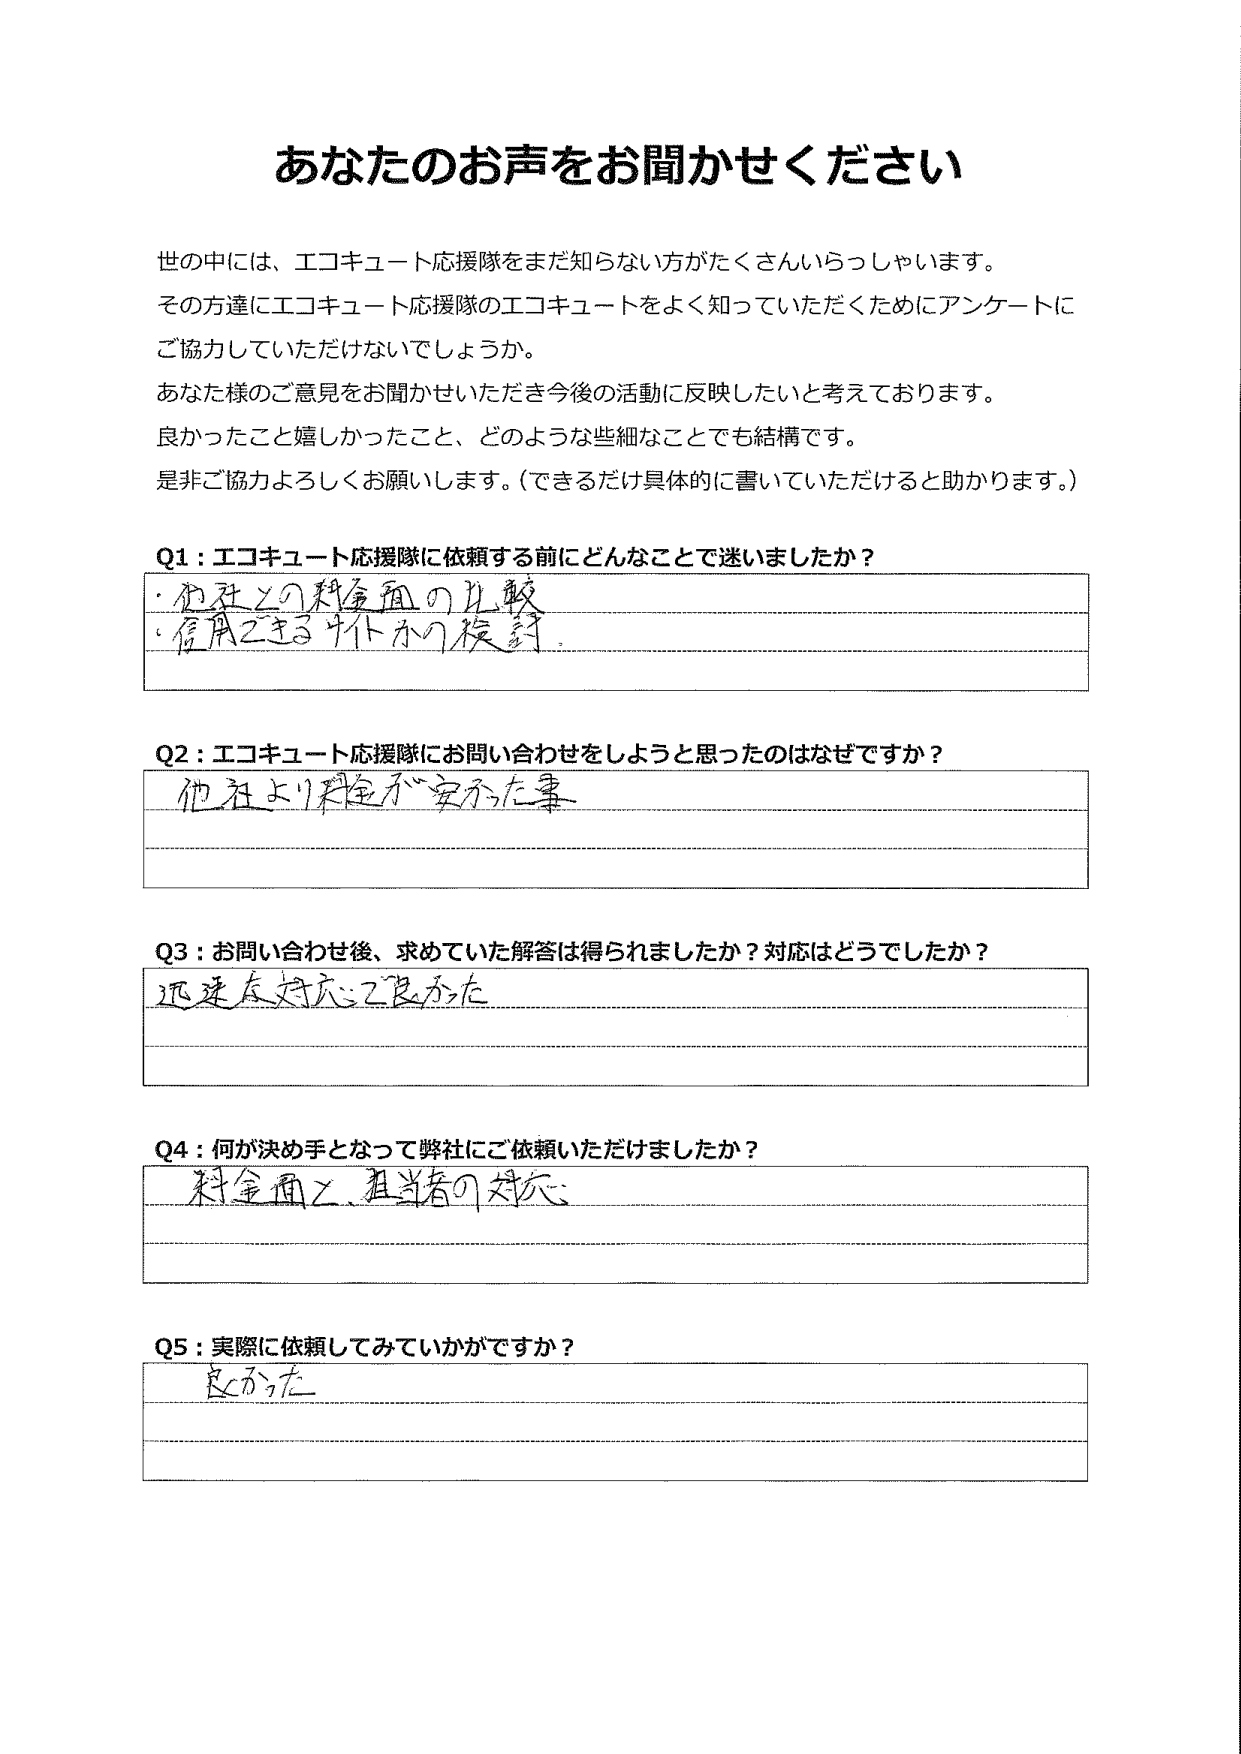 あなたのお声をお聞かせください
世の中には、エコキュート応援隊をまだ知らない方がたくさんいらっしゃいます。
その方達にエコキュート応援隊のエコキュートをよく知っていただくためにアンケートに
ご協力していただけないでしょうか。
あなた様のご意見をお聞かせいただき今後の活動に反映したいと考えております。
良かったこと嬉しかったこと、どのような些細なことでも結構です。
是非ご協力よろしくお願いします。（できるだけ具体的に書いていただけると助かります。）
Q1：エコキュート応援隊に依頼する前にどんなことで迷いましたか？
・他社との料金面の比較
・信用できるサイトかの検討.
Q2：エコキュート応援隊にお問い合わせをしようと思ったのはなぜですか？
他社より料金が安かった事
Q3：お問い合わせ後、求めていた解答は得られましたか？対応はどうでしたか？
迅速な対応で良かった
Q4：何が決め手となって弊社にご依頼いただけましたか？
料金面と、担当者の対応
Q5：実際に依頼してみていかがですか？
良かった